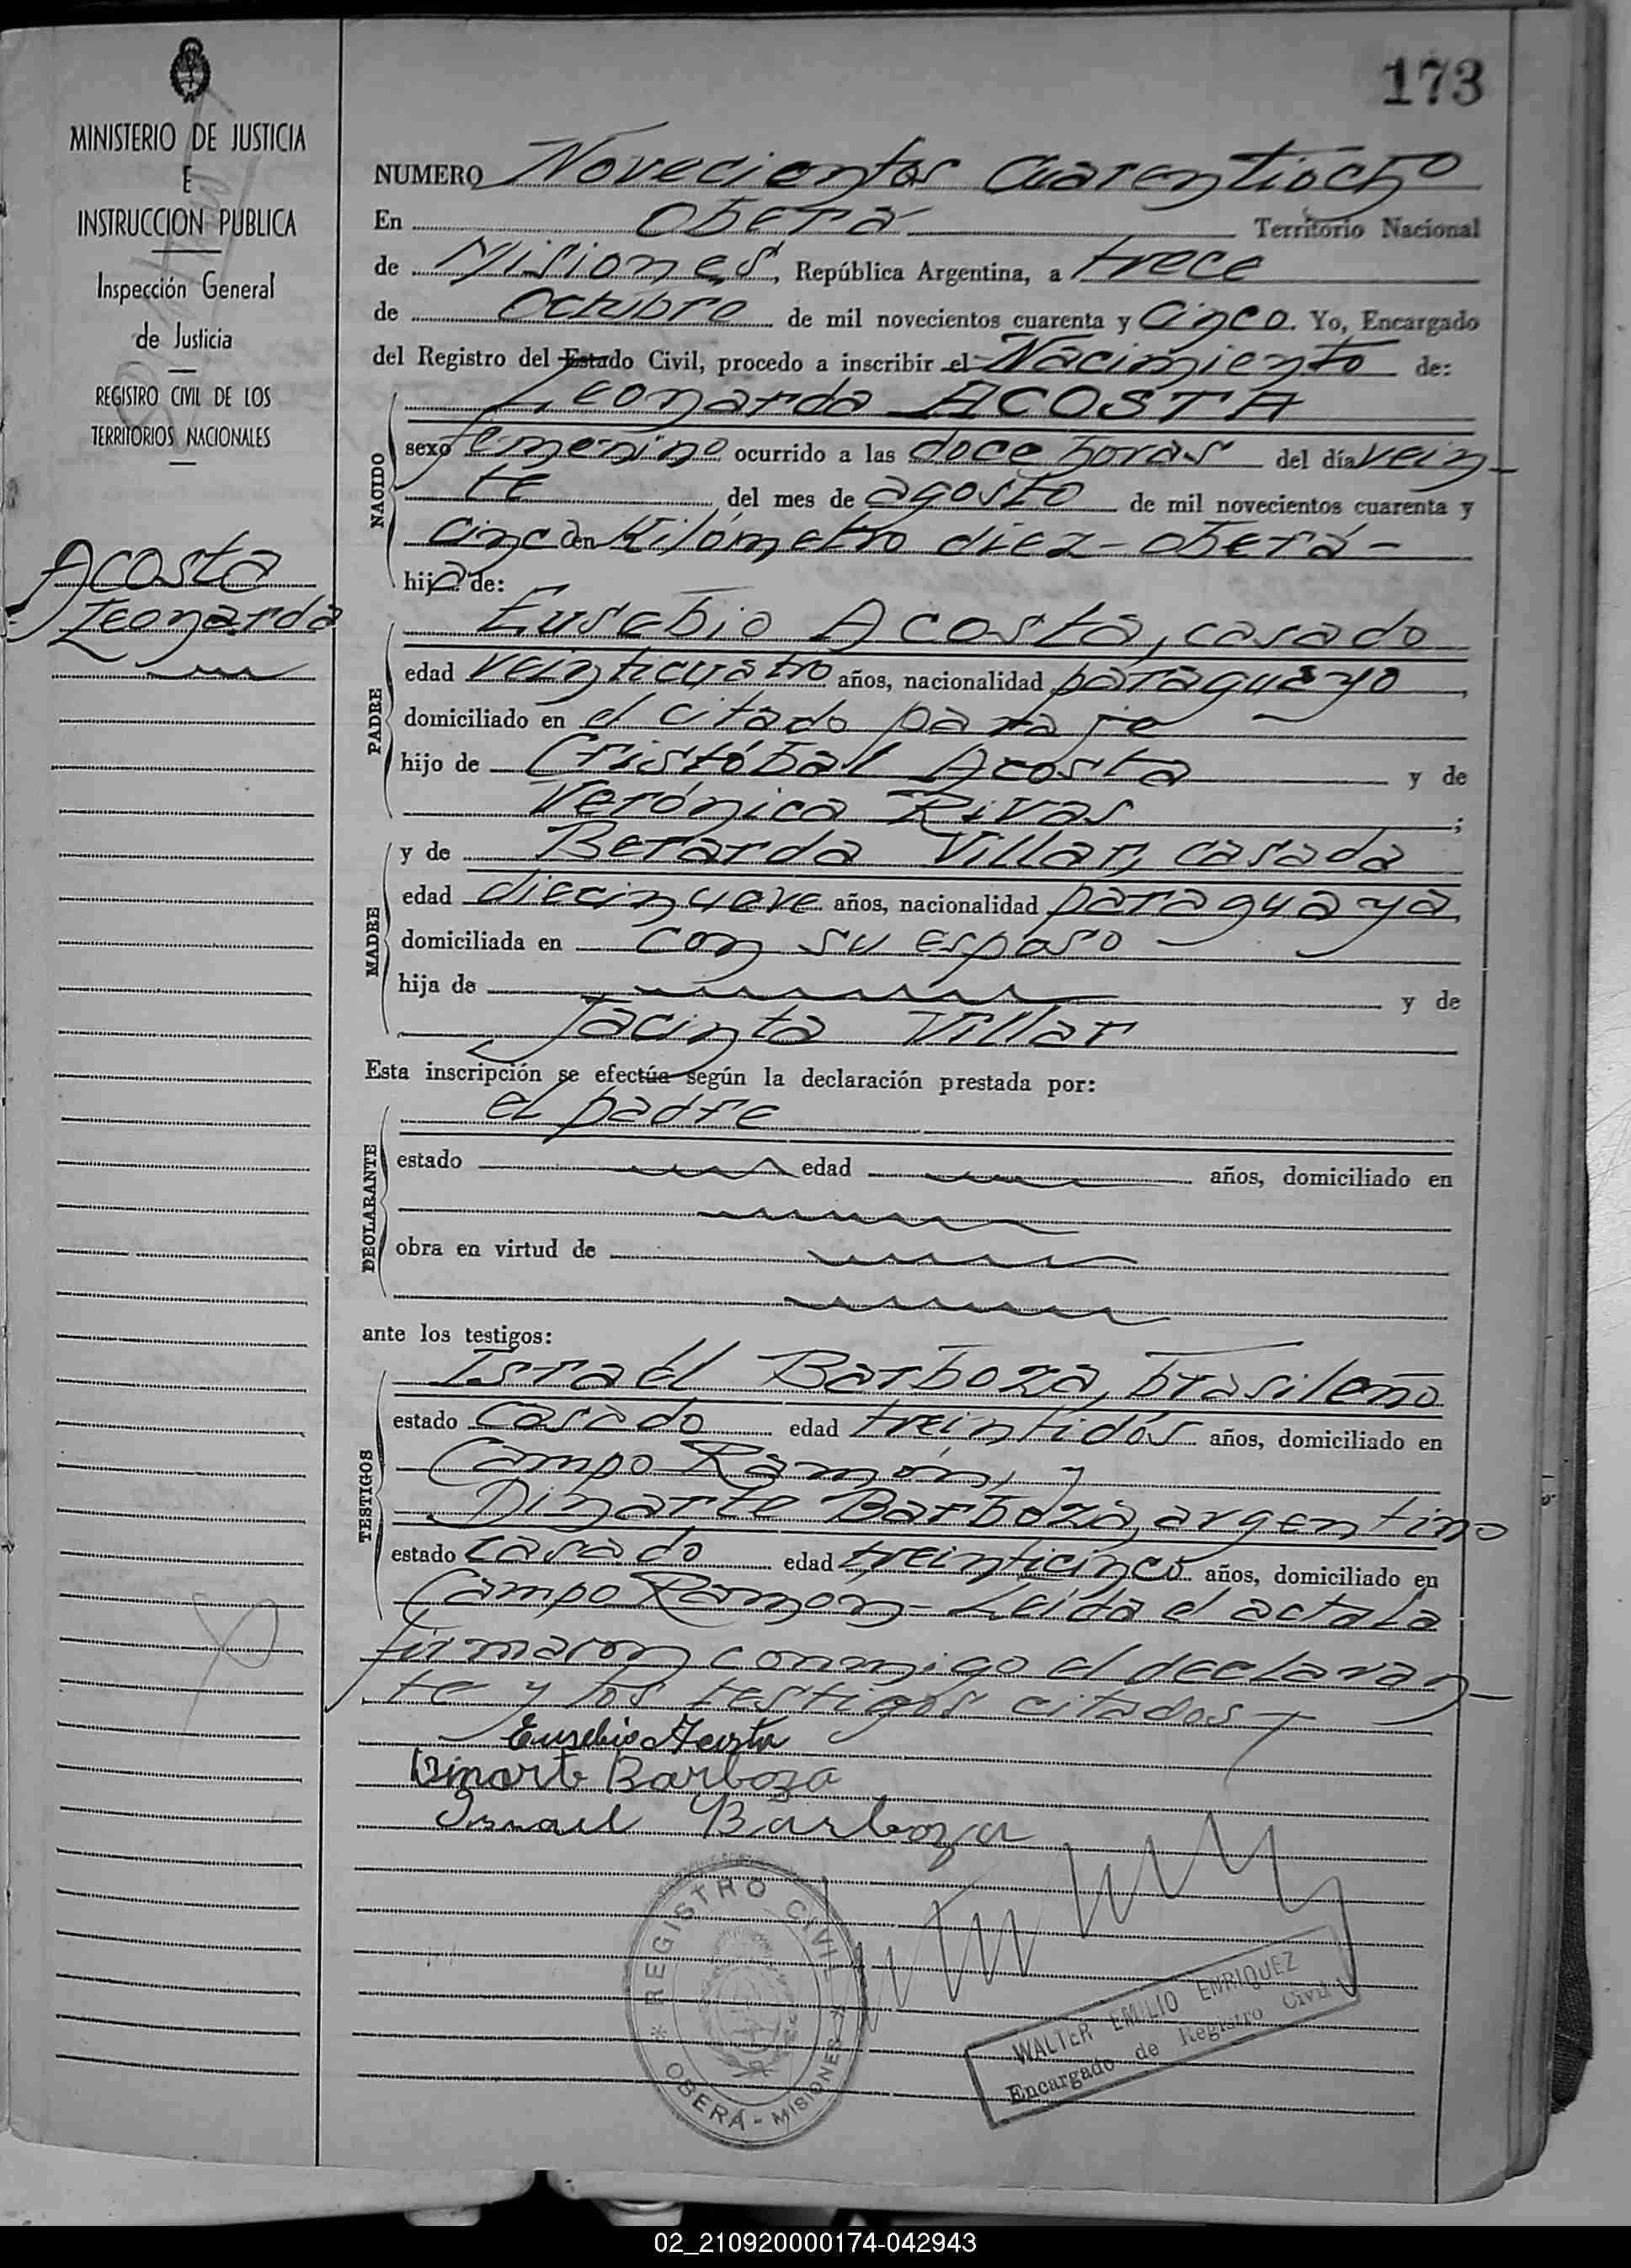 173
MINISTERIO DE JUSTICIA
E
INSTRUCCION PUBLICA
Inspección General
de Justicia
REGISTRO CIVIL DE LOS
TERRITORIOS NACIONALES
Acosta
Leonarda
NUMERO Novecientos Cuarentiocho
En Oberá Territorio Nacional
de Misiones, República Argentina, a trece
de Octubre de mil novecientos cuarenta y cinco. Yo, Encargado
del Registro del Estado Civil, procedo a inscribir el Nacimiento de:
NACIDO
Leonarda ACOSTA
sexo femenino ocurrido a las doce horas del día vein-
te del mes de agosto de mil novecientos cuarenta y
cinco en Kilómetro diez - Oberá -
hija de:
PADRE
Eusebio Acosta, casado
edad veinticuatro años, nacionalidad paraguayo,
domiciliado en el citado paraje -
hijo de Cristóbal Acosta y de
Verónica Rivas ;
MADRE
y de Berarda Villar, casada
edad diecinueve años, nacionalidad paraguaya,
domiciliada en con su esposo -
hija de y de
Jacinta Villar
Esta inscripción se efectúa según la declaración prestada por:
DECLARANTE
el padre
estado edad años, domiciliado en
obra en virtud de
ante los testigos:
TESTIGOS
Israél Barboza, brasileño
estado casado edad treintidós años, domiciliado en
Campo Ramón, y
Dinarte Barboza, argentino
estado casado edad treinticinco años, domiciliado en
Campo Ramón - Leída el acta la
firmaron conmigo el declaran-
te y los testigos citados -
Eusebio Acosta
Dinarte Barboza
Israel Barboza
REGISTRO CIVIL
OBERÁ - MISIONES
WALTER EMILIO ENRIQUEZ
Encargado de Registro Civil
02_210920000174-042943